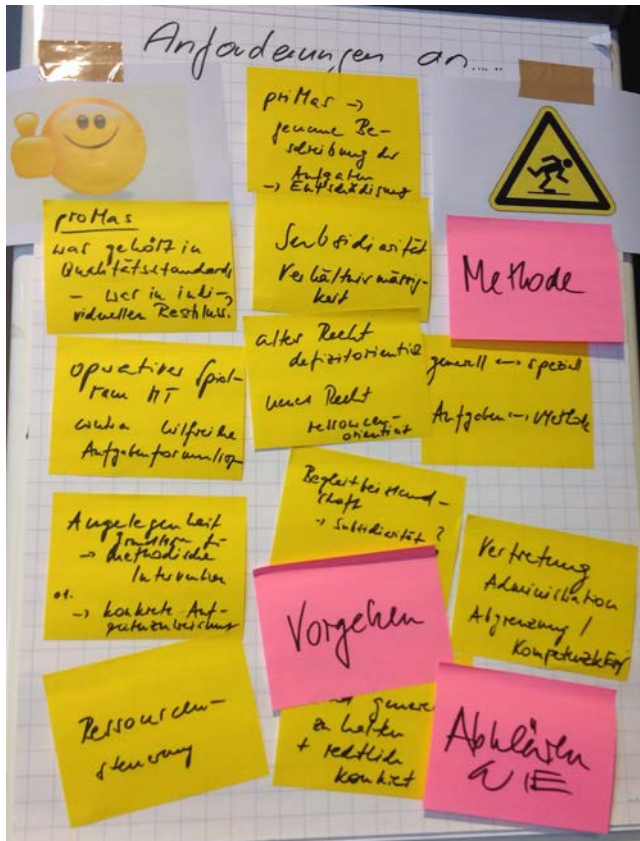 Anforderungen an.....
priMas →
genaue Be-
schreibung der
Aufgaben
→ Entschädigung
proMas
was gehört in
Qualitätsstandards
- was in indi-
viduellen Beschluss.
Subsidiarität
Verhältnismässig-
keit
Methode
operativer Spiel-
raum MT
contra hilfreiche
Aufgabenformulierung
altes Recht
defizitorientiert
neues Recht
ressourcen-
orientiert
generell ↔ speziell
Aufgaben ↔ Methode
Angelegenheit
→ methodische
Intervention
→ konkrete Auf-
gabenzuweisung
Begleitbeistand-
schaft
→ Subsidiarität?
Vorgehen
Vertretung
Administration
Abgrenzung /
Ressourcen-
steuerung
zu halten
+ rechtlich
konkret
Abklären
WIE